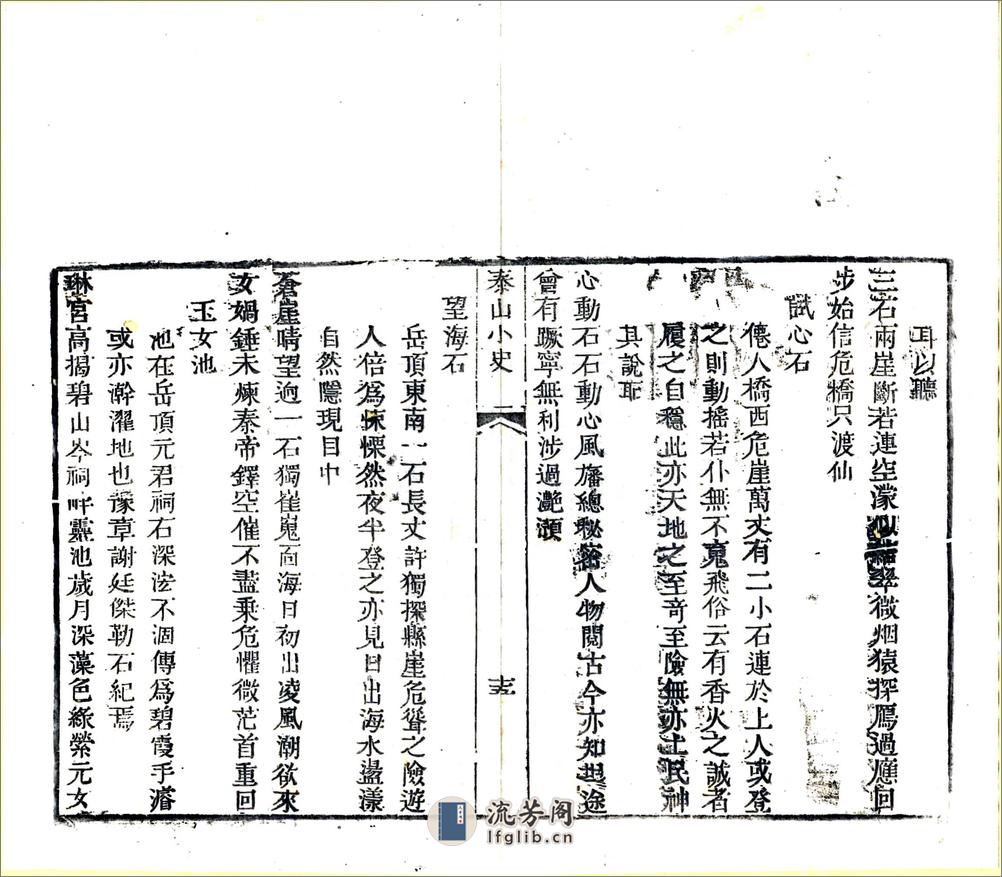 耳以聽
三石兩崖斷若連空濛似結翠微烟猿探鴈過應回
步始信危橋只渡仙
試心石
僊人橋西危崖萬丈有二小石連於上人或登
之則動搖若仆無不䰟飛俗云有香火之誠者
履之自穩此亦天地之至奇至險無亦土民神
其說耶
心動石石動心風旛總秘密人物閱古今亦知坦途
曾有蹶寧無利涉過灔澦
泰山小史
十五
望海石
岳頂東南一石長丈許獨探縣崖危聳之險遊
人倍爲悚慄然夜半登之亦見日出海水盪漾
自然隱現目中
蒼崖晴望逈一石獨崔嵬面海日初出凌風潮欲來
女媧錘未煉秦帝鐸空催不盡乗危懼微茫首重回
玉女池
池在岳頂元君祠右深泫不涸傳爲碧霞手濬
或亦澣濯地也豫章謝廷傑勒石紀焉
琳宮高揭碧山岑祠畔靈池歲月深藻色綠縈元女
流芳阁
lfglib.cn